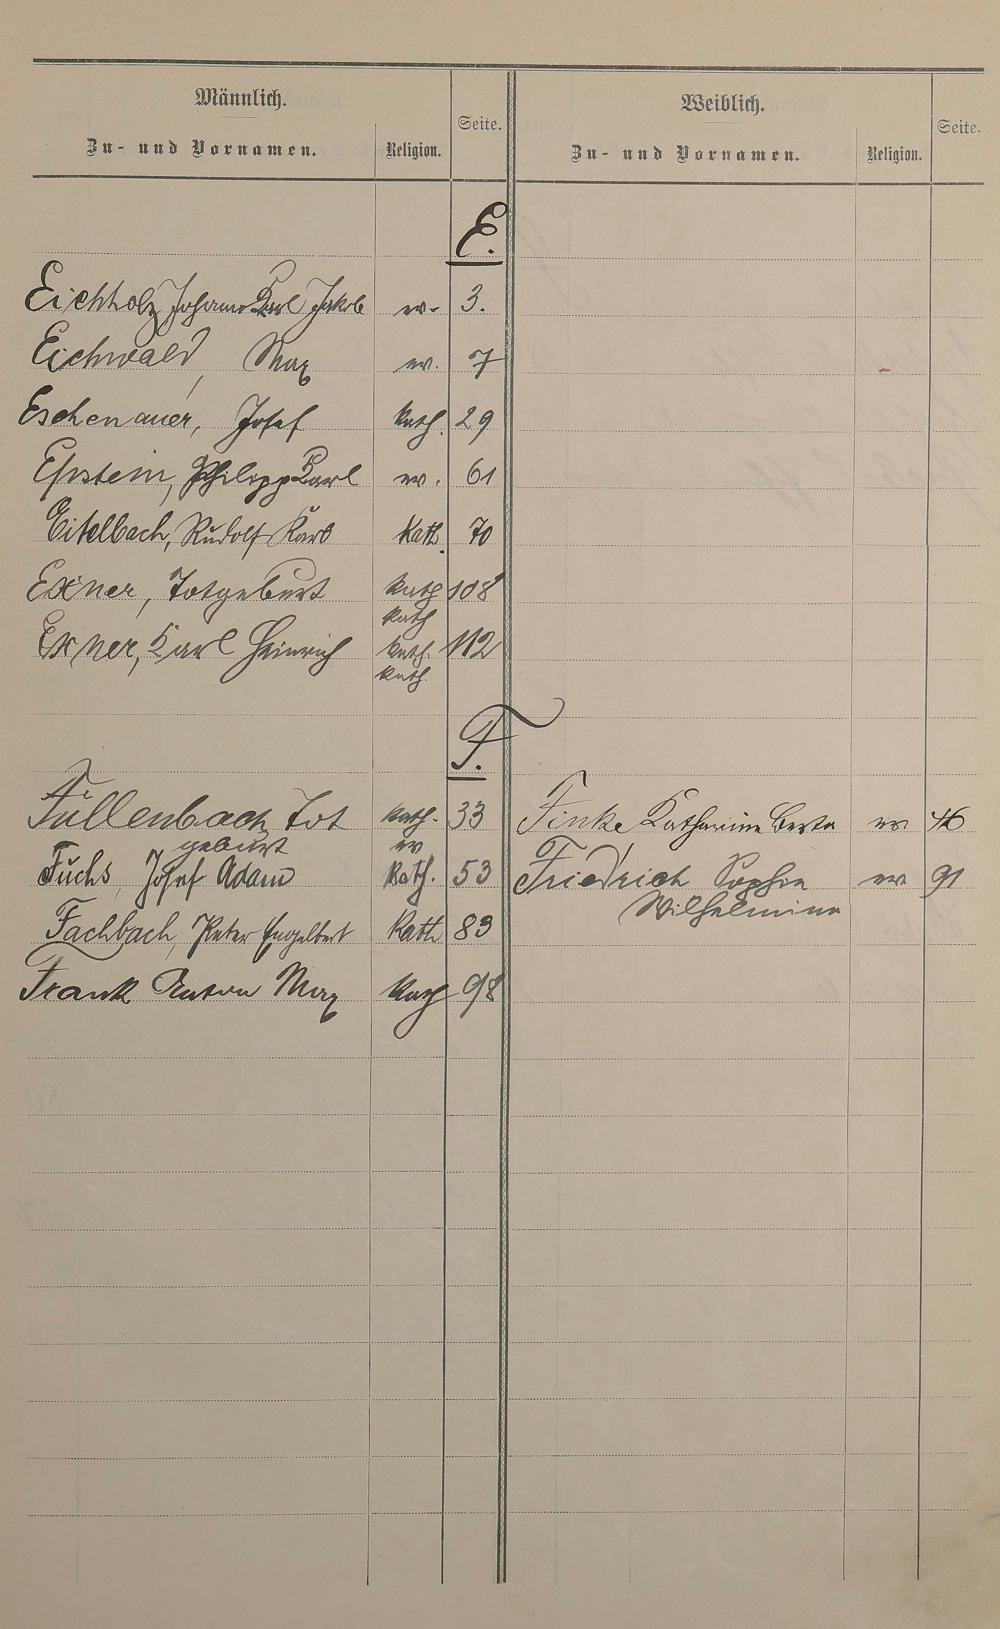 Männlich.
Zu- und Vornamen.
Religion.
Seite.
Weiblich.
Zu- und Vornamen.
Religion.
Seite.
E.
Eichholz Johann Karl Jakob ev. 3.
Eichwald, Max ev. 7
Eschenauer, Josef kath. 29
Epstein, Philipp Karl ev. 61
Eitelbach, Rudolf Karl Kath. 70
Exner, Totgeburt kath 108
kath
Exner, Karl Heinrich kath. 112
kath.
F.
Füllenbach, Tot kath. 33 Finke Katharina Berta ev.
geburt ev
Fuchs, Josef Adam Kath. 53 Friedrich Sophie ev 91
Wilhelmine
Fachbach, Peter Engelbert Kath 83
Frank Anton Max kath 98